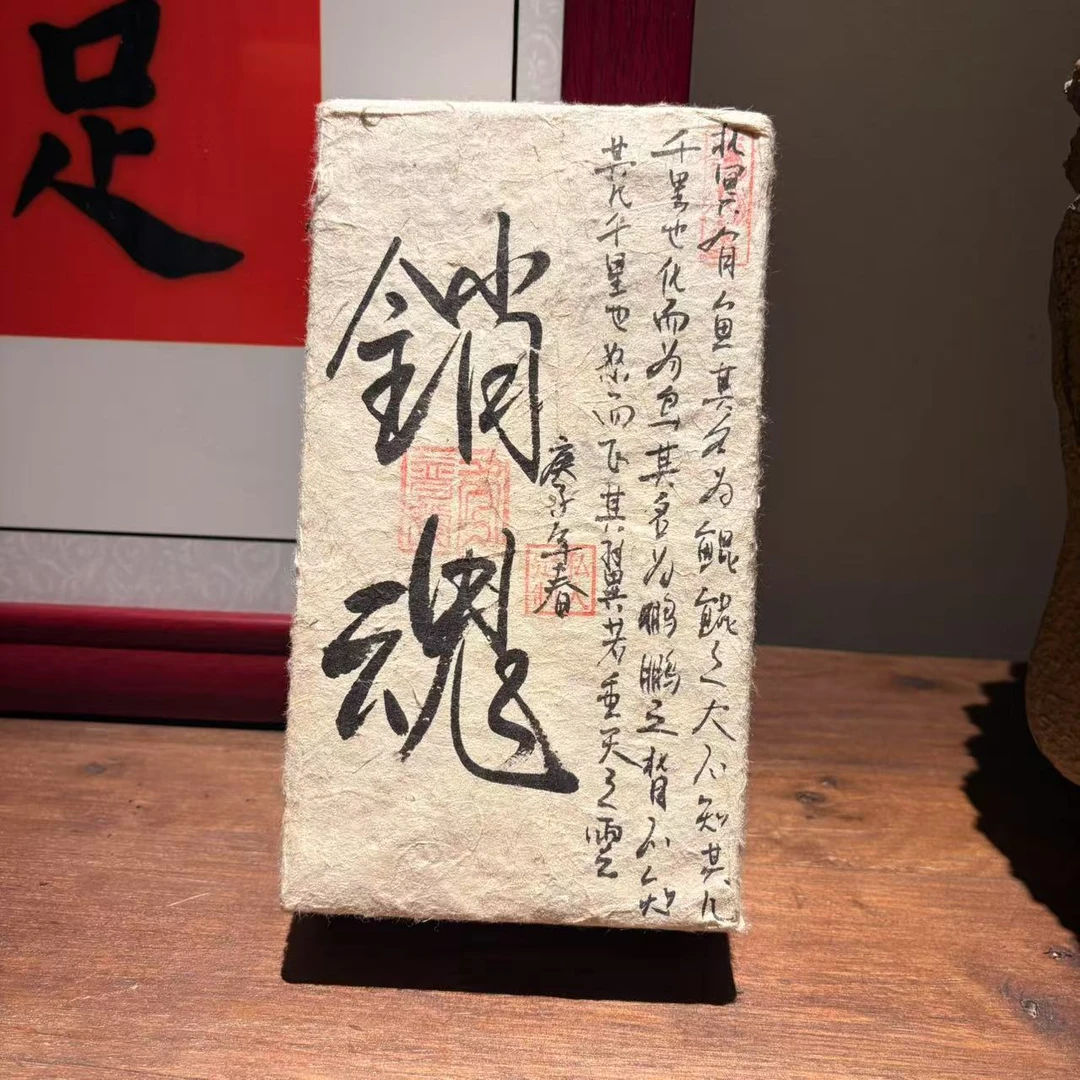 北冥有鱼其名为鲲鲲之大不知其几
千里也化而为鸟其名为鹏鹏之背不知
其几千里也怒而飞其翼若垂天之雲
庚子年春
銷魂
足